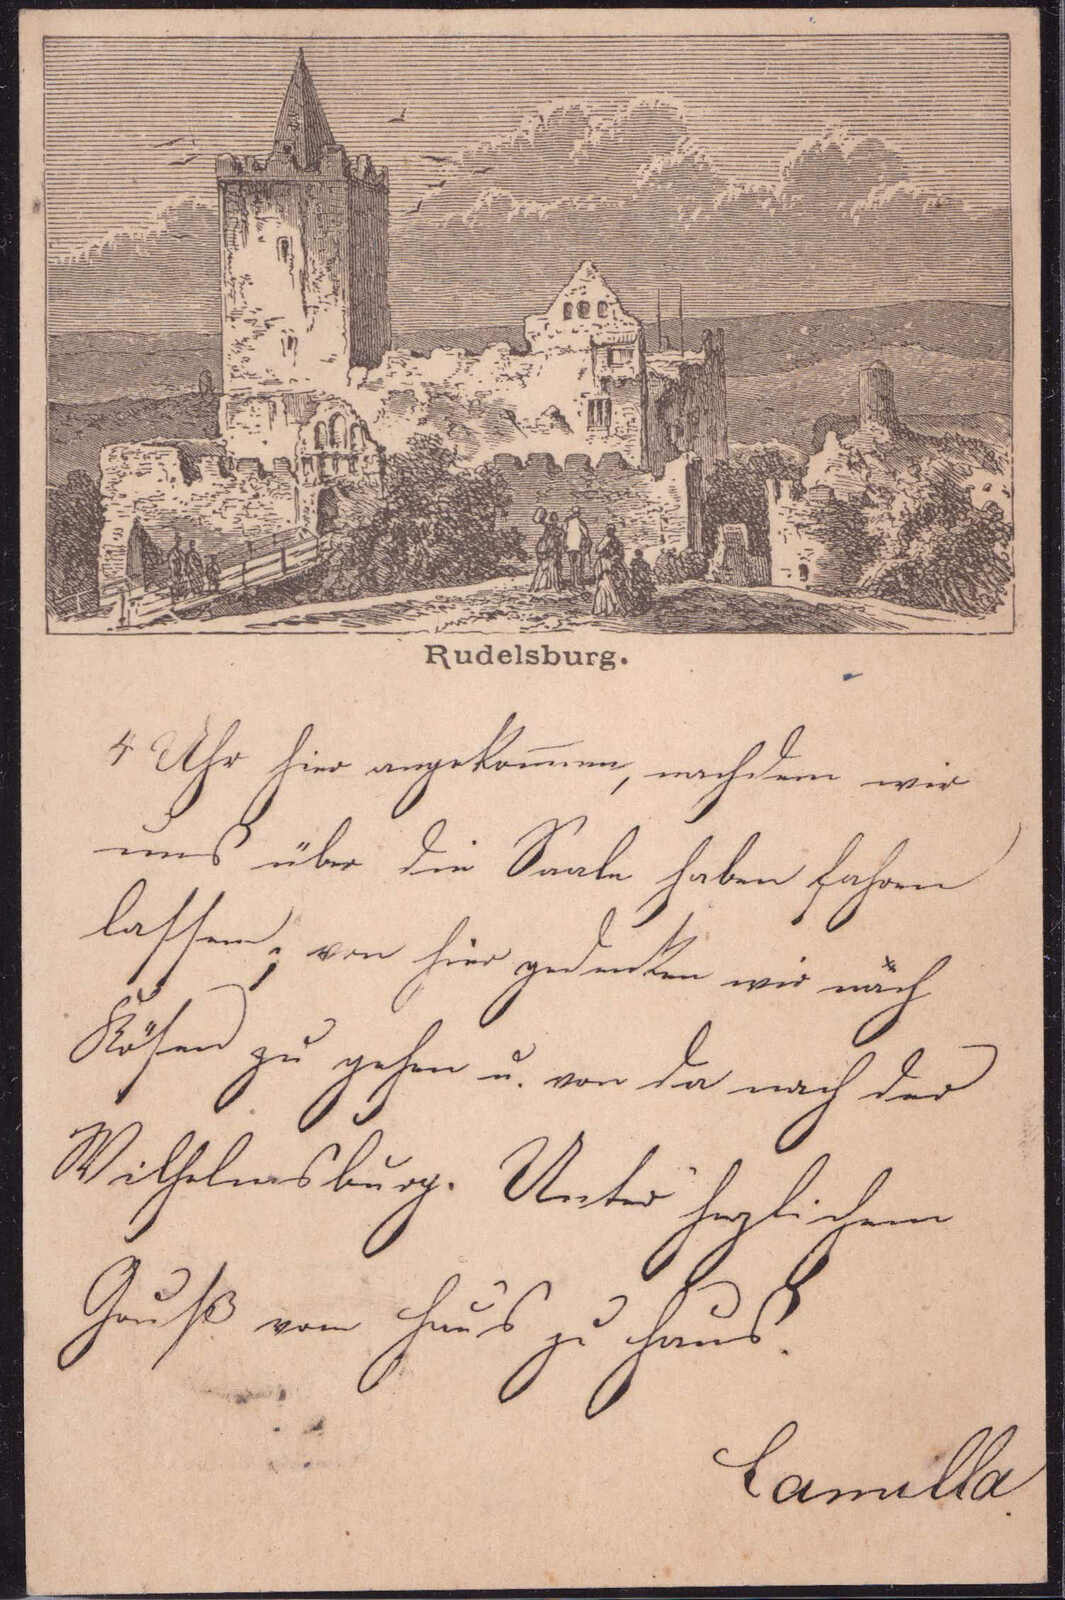 Rudelsburg.
4 Uhr hier angekommen, nachdem wir
uns über die Saale haben fahren
lassen; von hier gedenken wir nach
Kösen zu gehen u. von da nach der
Wilhelmsburg. Unter herzlichem
Gruß von Haus zu Haus.
Camilla